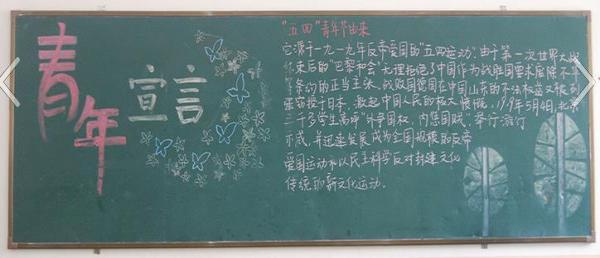 青年
宣言
"五四"青年节由来
它源于一九一九年反帝爱国的"五四运动".由于第一次世界大战
结束后的"巴黎和会"无理拒绝了中国作为战胜国要求废除不平
等条约的正当主张,
张转授于日本,激起中国人民的极大愤慨,1919年5月4日,北京
三千名学生高呼"外争国权,内惩国贼",举行游行
示威,并迅速发展成为全国规模的反帝
爱国运动和以民主科学反对封建文化
传统的新文化运动。